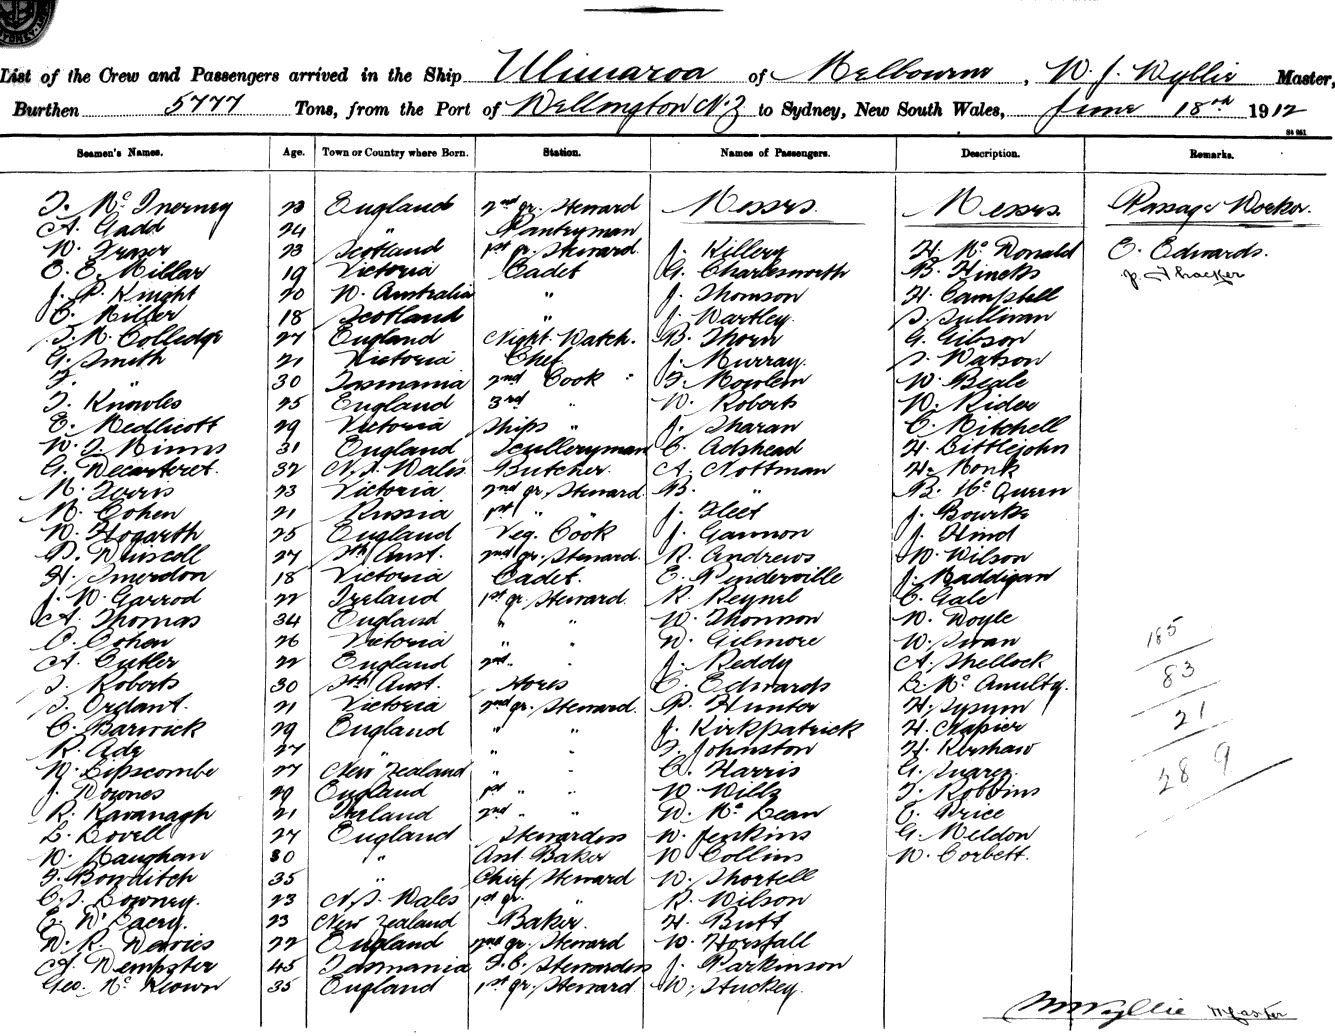 List of the Crew and Passengers arrived in the Ship Ulimaroa of Melbourne, W. J. Wyllie Master,
Burthen 5777 Tons, from the Port of Wellington N.Z to Sydney, New South Wales, June 18th 1912
Seamen's Names. Age. Town or Country where Born. Station. Names of Passengers. Description. Remarks.
T. McInerney 23 England 2nd gr. Steward Messrs. Messrs. Passage Worker.
A. Gadd 24 " Pantryman
W. Fraser 23 Scotland 1st gr. Steward J. Killery H. McDonald E. Edwards.
C. E. Millar 19 Victoria Cadet G. Charlesworth B. Hincks J. Thacker
J. P. Knight 20 W. Australia " J. Thomson H. Campbell
C. Miller 18 Scotland " J. Wartley S. Sullivan
T. M. Colledge 27 England Night Watch. B. Thorn G. Gibson
G. Smith 21 Victoria Chef J. Murray. S. Watson
F. " 30 Tasmania 2nd Cook F. Mowlem W. Beale
T. Knowles 25 England 3rd " W. Roberts W. Rider
E. Medlicott 29 Victoria Ships " J. Sharan C. Mitchell
W. J. Minns 31 England Sculleryman C. Adshead H. Littlejohn
G. Decarteret. 32 N.S. Wales Butcher. A. Nottman H. Monk
M. Ferris 23 Victoria 2nd gr. Steward B. " B. McQueen
M. Cohen 21 Russia 1st " " J. Fleet J. Bourke
W. Hogarth 25 England Veg. Cook J. Gannon J. Hind
P. Driscoll 27 Sth Aust. 2nd gr. Steward. R. Andrews W. Wilson
H. Smerdon 18 Victoria Cadet. E. Penderville J. Maddigan
J. W. Garrod 22 Ireland 1st gr. Steward. R. Reynel C. Gale
A. Thomas 34 England " " W. Thomson W. Doyle
C. Cohen 26 Victoria " " W. Gilmore W. Swan
A. Cutler 22 England 2nd " " J. Reddy A. Shellock
S. Roberts 30 Sth Aust. Stores C. Edwards L. McAnulty.
S. Ordant. 21 Victoria 2nd gr. Steward. P. Hunter H. Sysum
C. Barwick 29 England " " J. Kirkpatrick H. Crapier
R. Ady 27 " " " F. Johnston H. Kershaw
W. Lipscombe 27 New Zealand " " C. Harris G. Suarez
J. Downes 29 England 1st " " W. Wills F. Robbins
R. Kavanagh 21 Ireland 2nd " " D. McLean C. Price
L. Lovell 27 England Stewardess W. Jenkins G. Weldon
W. Maughan 30 " Asst. Baker W Collins W. Corbett.
F. Bowditch 35 " Chief Steward W. Shortell
C. S. Downey. 23 N.S. Wales 1st gr. " R. Wilson
E. W. Lacey. 23 New Zealand Baker. H. Butt
W. R. Davies 22 England 2nd gr. Steward W. Horsfall
A. Dempster 45 Tasmania F.C. Stewardess J. Parkinson
Geo. McKeown 35 England 1st gr. Steward W. Stuckey.
185
83
21
289
W J Wyllie Master